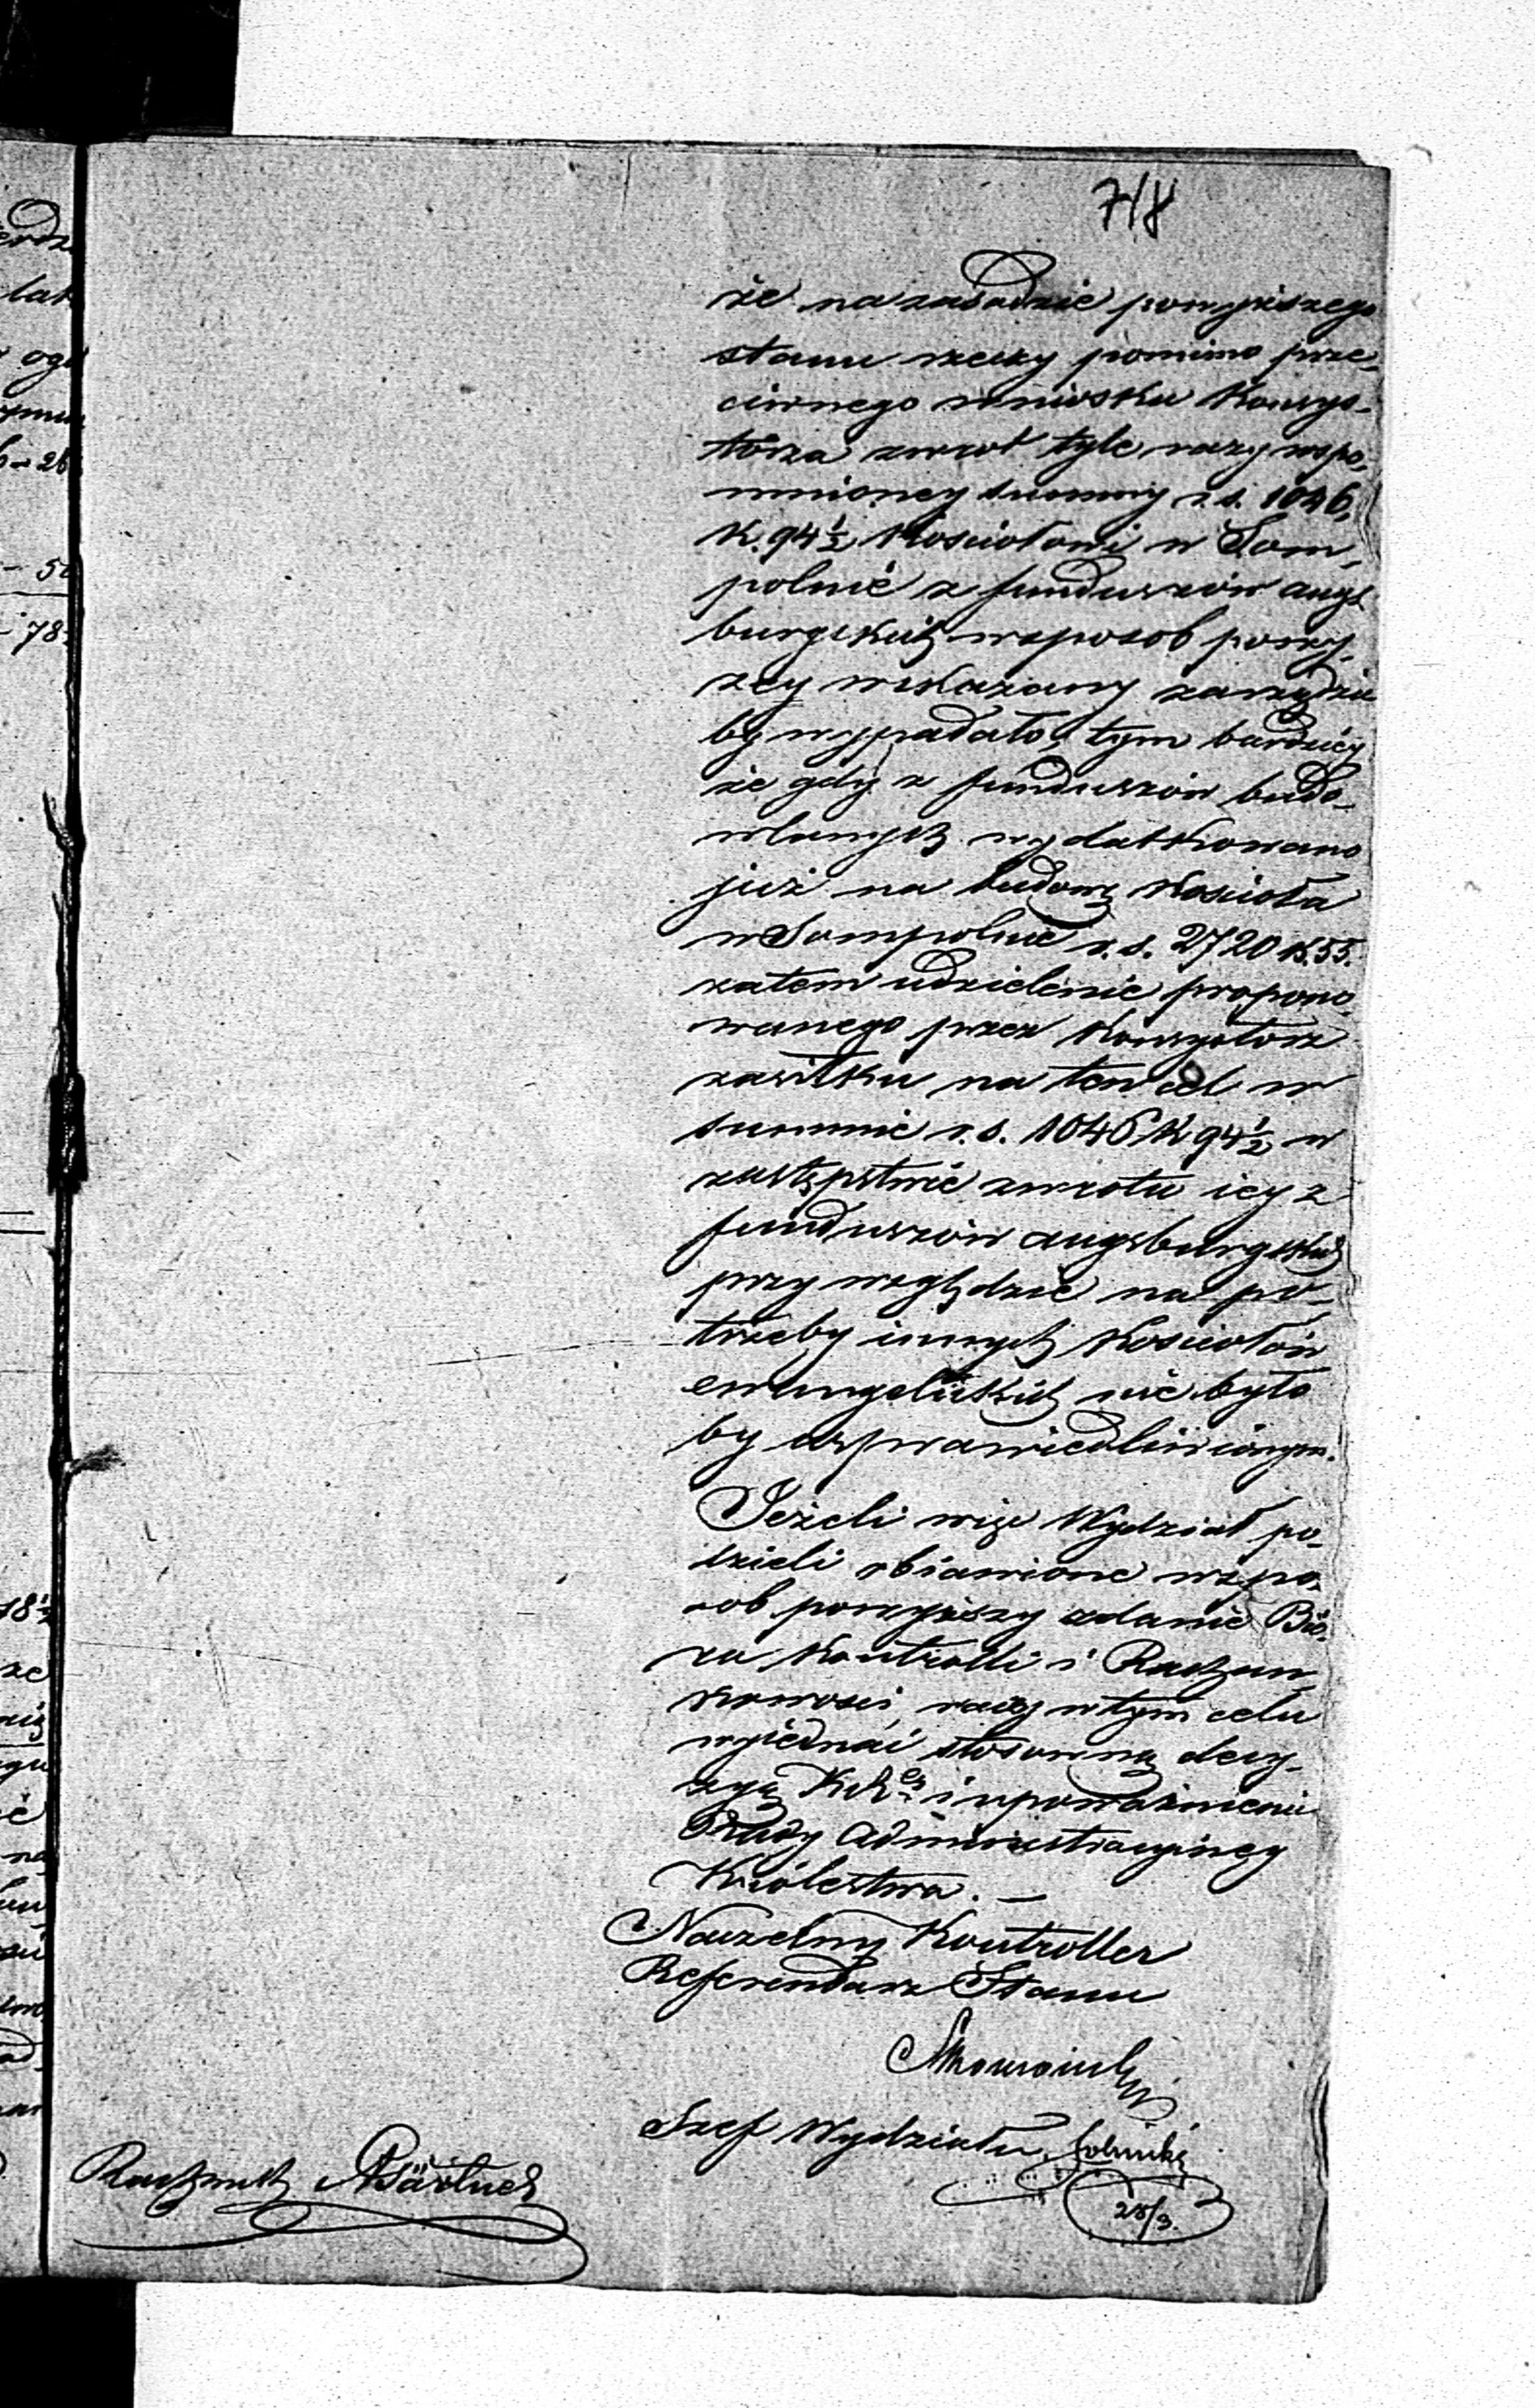 718
że na zasadzie powyższego
stanu rzeczy pomimo prze-
ciwnego wniosku Konsys-
torza zwrot tyle razy wspo-
mnioney summy r.s. 1046,
K. 94½ Kościołowi w Som-
polnie z funduszów augs-
burgskich w sposob powy-
żey wskazany zarządzić
by wypadało, tym bardziey
że gdy z funduszów budo-
wlanych wydatkowano
już na budowę Kościoła
w Sompolnie r.s. 2720 k. 55.
zatem udzielenie propono-
wanego przez Konsystorz
zasiłku na ten cel w
summie r.s. 1046 K 94½ w
zastępstwie zwrotu iey z
funduszów augsburgskich
przy względzie na po-
trzeby innych Kościołów
ewangelickich nie było
by usprawiedliwionym.
Jeżeli więc Wydział po-
dzieli obiawione w spo-
sob powyższy zdanie Bió-
ra Kontrolli i Rachun-
kowości, raczy w tym celu
wyiednać stosowną decy-
zyę i upoważnienie
Rady Administracyiney
Królestwa. —
Naczelny Kontroller
Referendarz Stanu
Szef Wydziału
28/3.
Rachmistrz